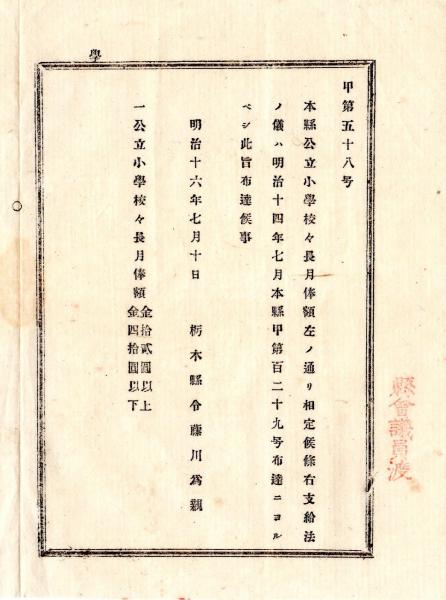 學
甲第五十八号
本縣公立小學校々長月俸額左ノ通リ相定候條右支給法
ノ儀ハ明治十四年七月本縣甲第百二十九号布達ニヨル
ベシ此旨布達候事
明治十六年七月十日 栃木縣令藤川爲親
一公立小學校々長月俸額 金拾貳圓以上
金四拾圓以下
縣會議員渡